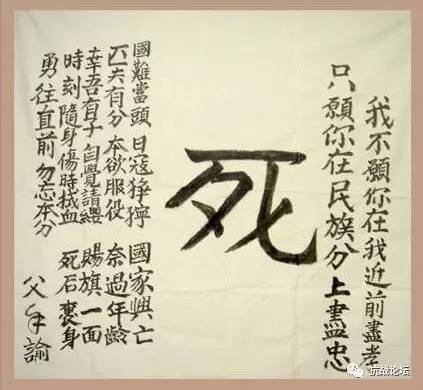 我不願你在我近前盡孝
只願你在民族分上盡忠
死
國難當頭 日寇猙獰 國家興亡
匹夫有分 本欲服役 奈過年齡
幸吾有子 自覺請纓 賜旗一面
時刻隨身 傷時拭血 死后裹身
勇往直前 勿忘本分
父手諭
抗战论坛